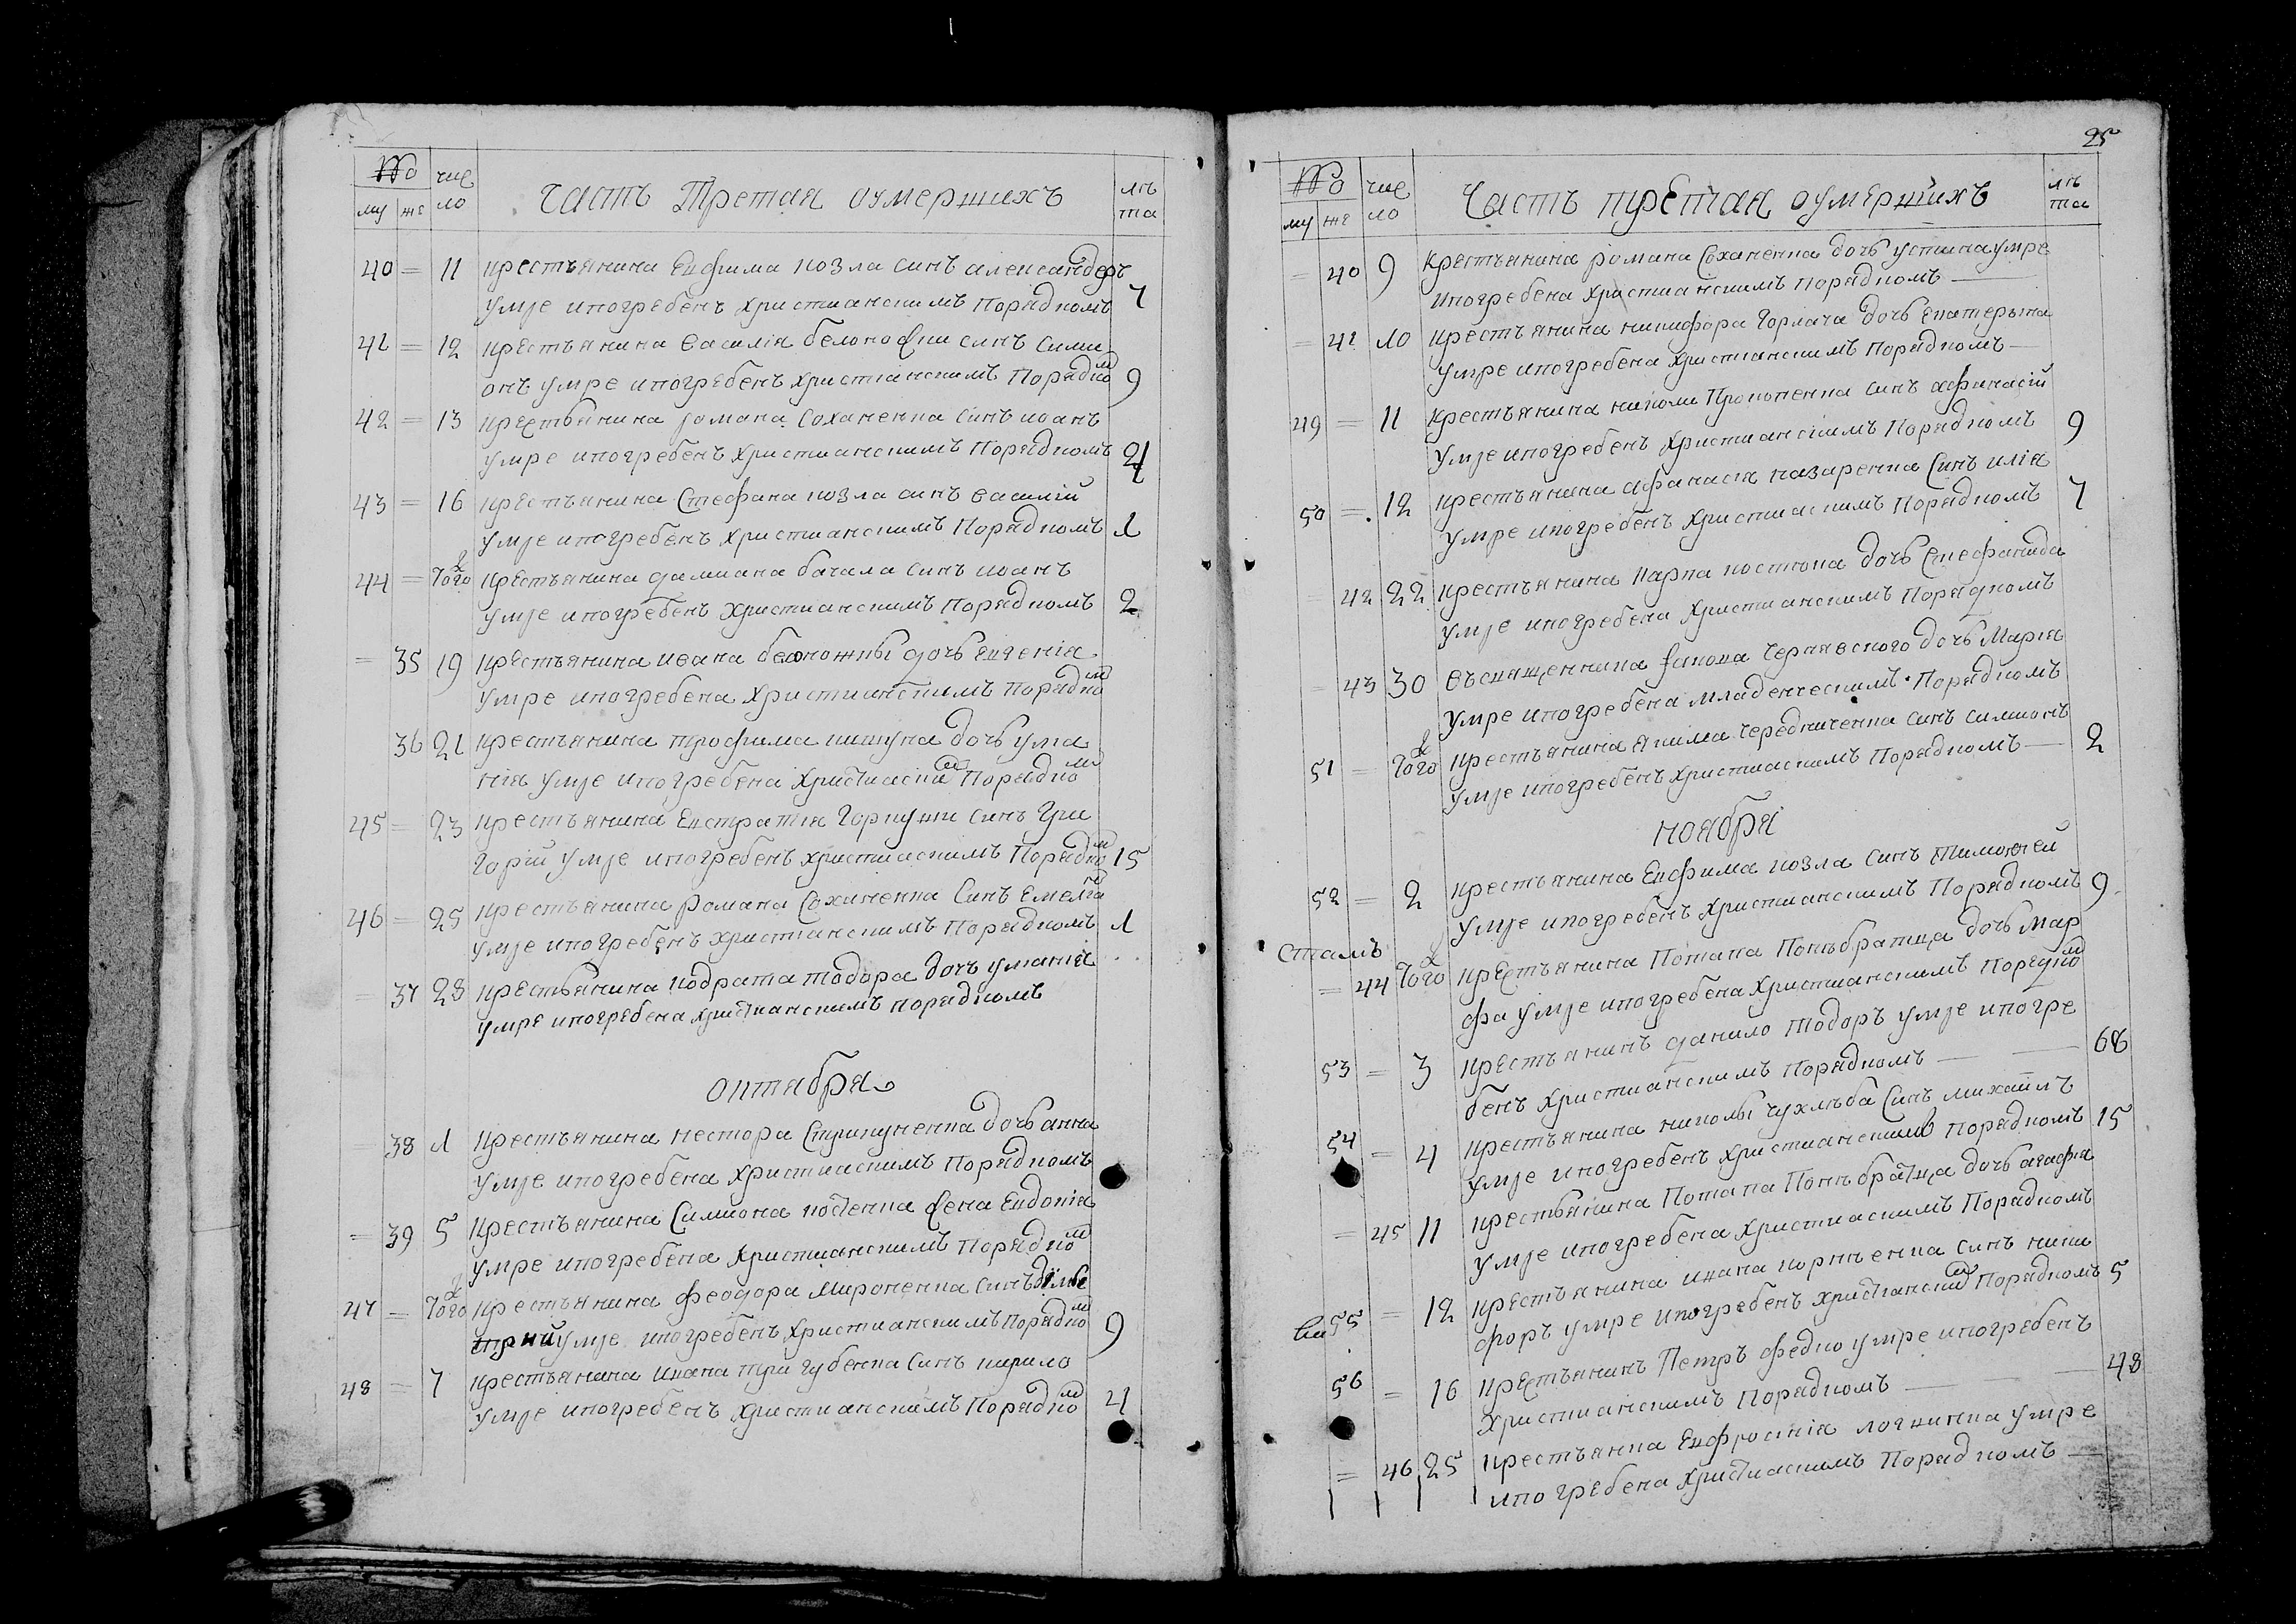 № чис часть Третая оумершихъ лѣ
му же ло та
40 = 11 крестьянина Евфима козла синъ александеръ
умре ипогребенъ християнскимъ порядкомъ 7
41 = 12 крестьянина Василія белоно синъ Сими
онъ умре ипогребенъ христіанскимъ Порядком 9
42 = 13 крестьянина романа соханенка синъ иоанъ
умре ипогребенъ християнскимъ порядкомъ 4
43 = 16 крестьянина Стефана козла синъ василій
умре ипогребенъ християнскимъ Порядкомъ 1
44 = Того крестьянина дамиана бачала синъ иоанъ
умре ипогребенъ християнскимъ порядкомъ 2
= 35 19 крестьянина ивана дочь Евгенія
умре ипогребена християнскимъ порядком
36 21 крестьянина трофима дочь ули
нія умре ипогребена христиаским Порядком
45 = 23 крестьянина Евстратія Горкуши синъ Гри
горій умре ипогребенъ христиаскимъ Порядком 15
46 = 25 крестьянина романа Соханенка Синъ Емеліа
умре ипогребенъ христианскимъ порядкомъ 1
= 37 28 крестьянина кодрата тодора дочь
умре ипогребена христианскимъ порядкомъ
октабра
= 38 1 крестьянина нестора Стрикуненка дочь анна
умре ипогребена христиаскимъ порядкомъ
= 39 5 крестьянина Симиона костенка Евдокія
умре ипогребена християнскимъ порядком
47 = Того крестьянина феодора Мироненка синъ дími
трий умре ипогребенъ християнскимъ порядком 9
48 = 7 крестьянина ивана тригубенка синъ кирило
умре ипогребенъ християнскимъ Порядком 4
25
№ чис Часть претая оумершихъ лѣ
му же ло та
= 40 9 крестьянина романа Соханенка дочь устина умре
ипогребена християнскимъ порядкомъ —
= 41 10 крестьянина никифора Горлача дочь Екатерына
умре ипогребена християнскимъ порядкомъ —
49 = 11 крестьянина николи Прокопенка синъ афанасій
умре ипогребенъ християнскимъ Порядкомъ 9
50 = 12 крестьянина афанасія назаренка Синъ илія
умре ипогребенъ християскимъ Порядкомъ 7
= 42 22 крестьянина карпа костюка дочь Стефанида
умре ипогребена християнскимъ Порядкомъ
= 43 30 священника Чернявского дочь Марія
умре ипогребена младенческимъ Порядкомъ
51 = Того крестьянина якима Чередниченка синъ симионъ
умре ипогребенъ християскимъ Порядкомъ — 2
ноября
52 = 2 крестьянина Евфима козла синъ тимофей
умре ипогребенъ християнскимъ Порядкомъ 9
стамъ
= 44 Того крестьянина Потапа Понебратца дочь Мар
фа умре ипогребена християнскимъ порядком
53 = 3 крестьянинъ данило тодоръ умре ипогре
бенъ християнскимъ порядкомъ — 68
54 = 4 крестьянина николы чухлѣба Синъ михаилъ
умре ипогребенъ християнским порядкомъ 15
= 45 11 крестьянина Потапа Понебратца дочь агафія
умре ипогребена християскимъ Порядкомъ
55 = 12 крестьянина ивана корнѣенка синъ ники
форъ умре ипогребенъ христіанским порядкомъ 5
56 = 16 крестьянинъ Петръ федко умре ипогребенъ
християнскимъ порядкомъ — 48
= 46 25 крестьянка Евфросинія логвинка умре
ипогребена христиаскимъ Порядкомъ —